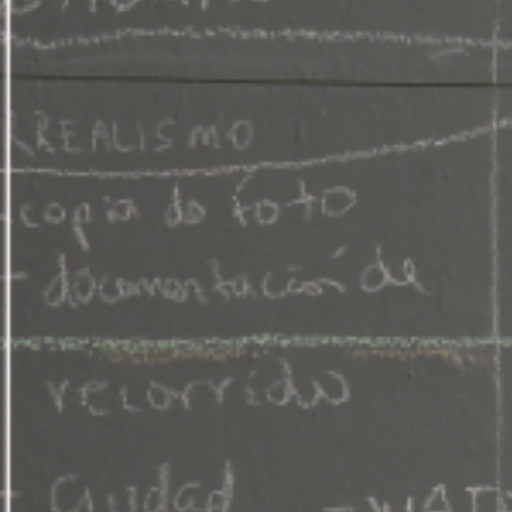 RREALISMO
-copia de foto
- documentación de
recorrido
- Ciudad